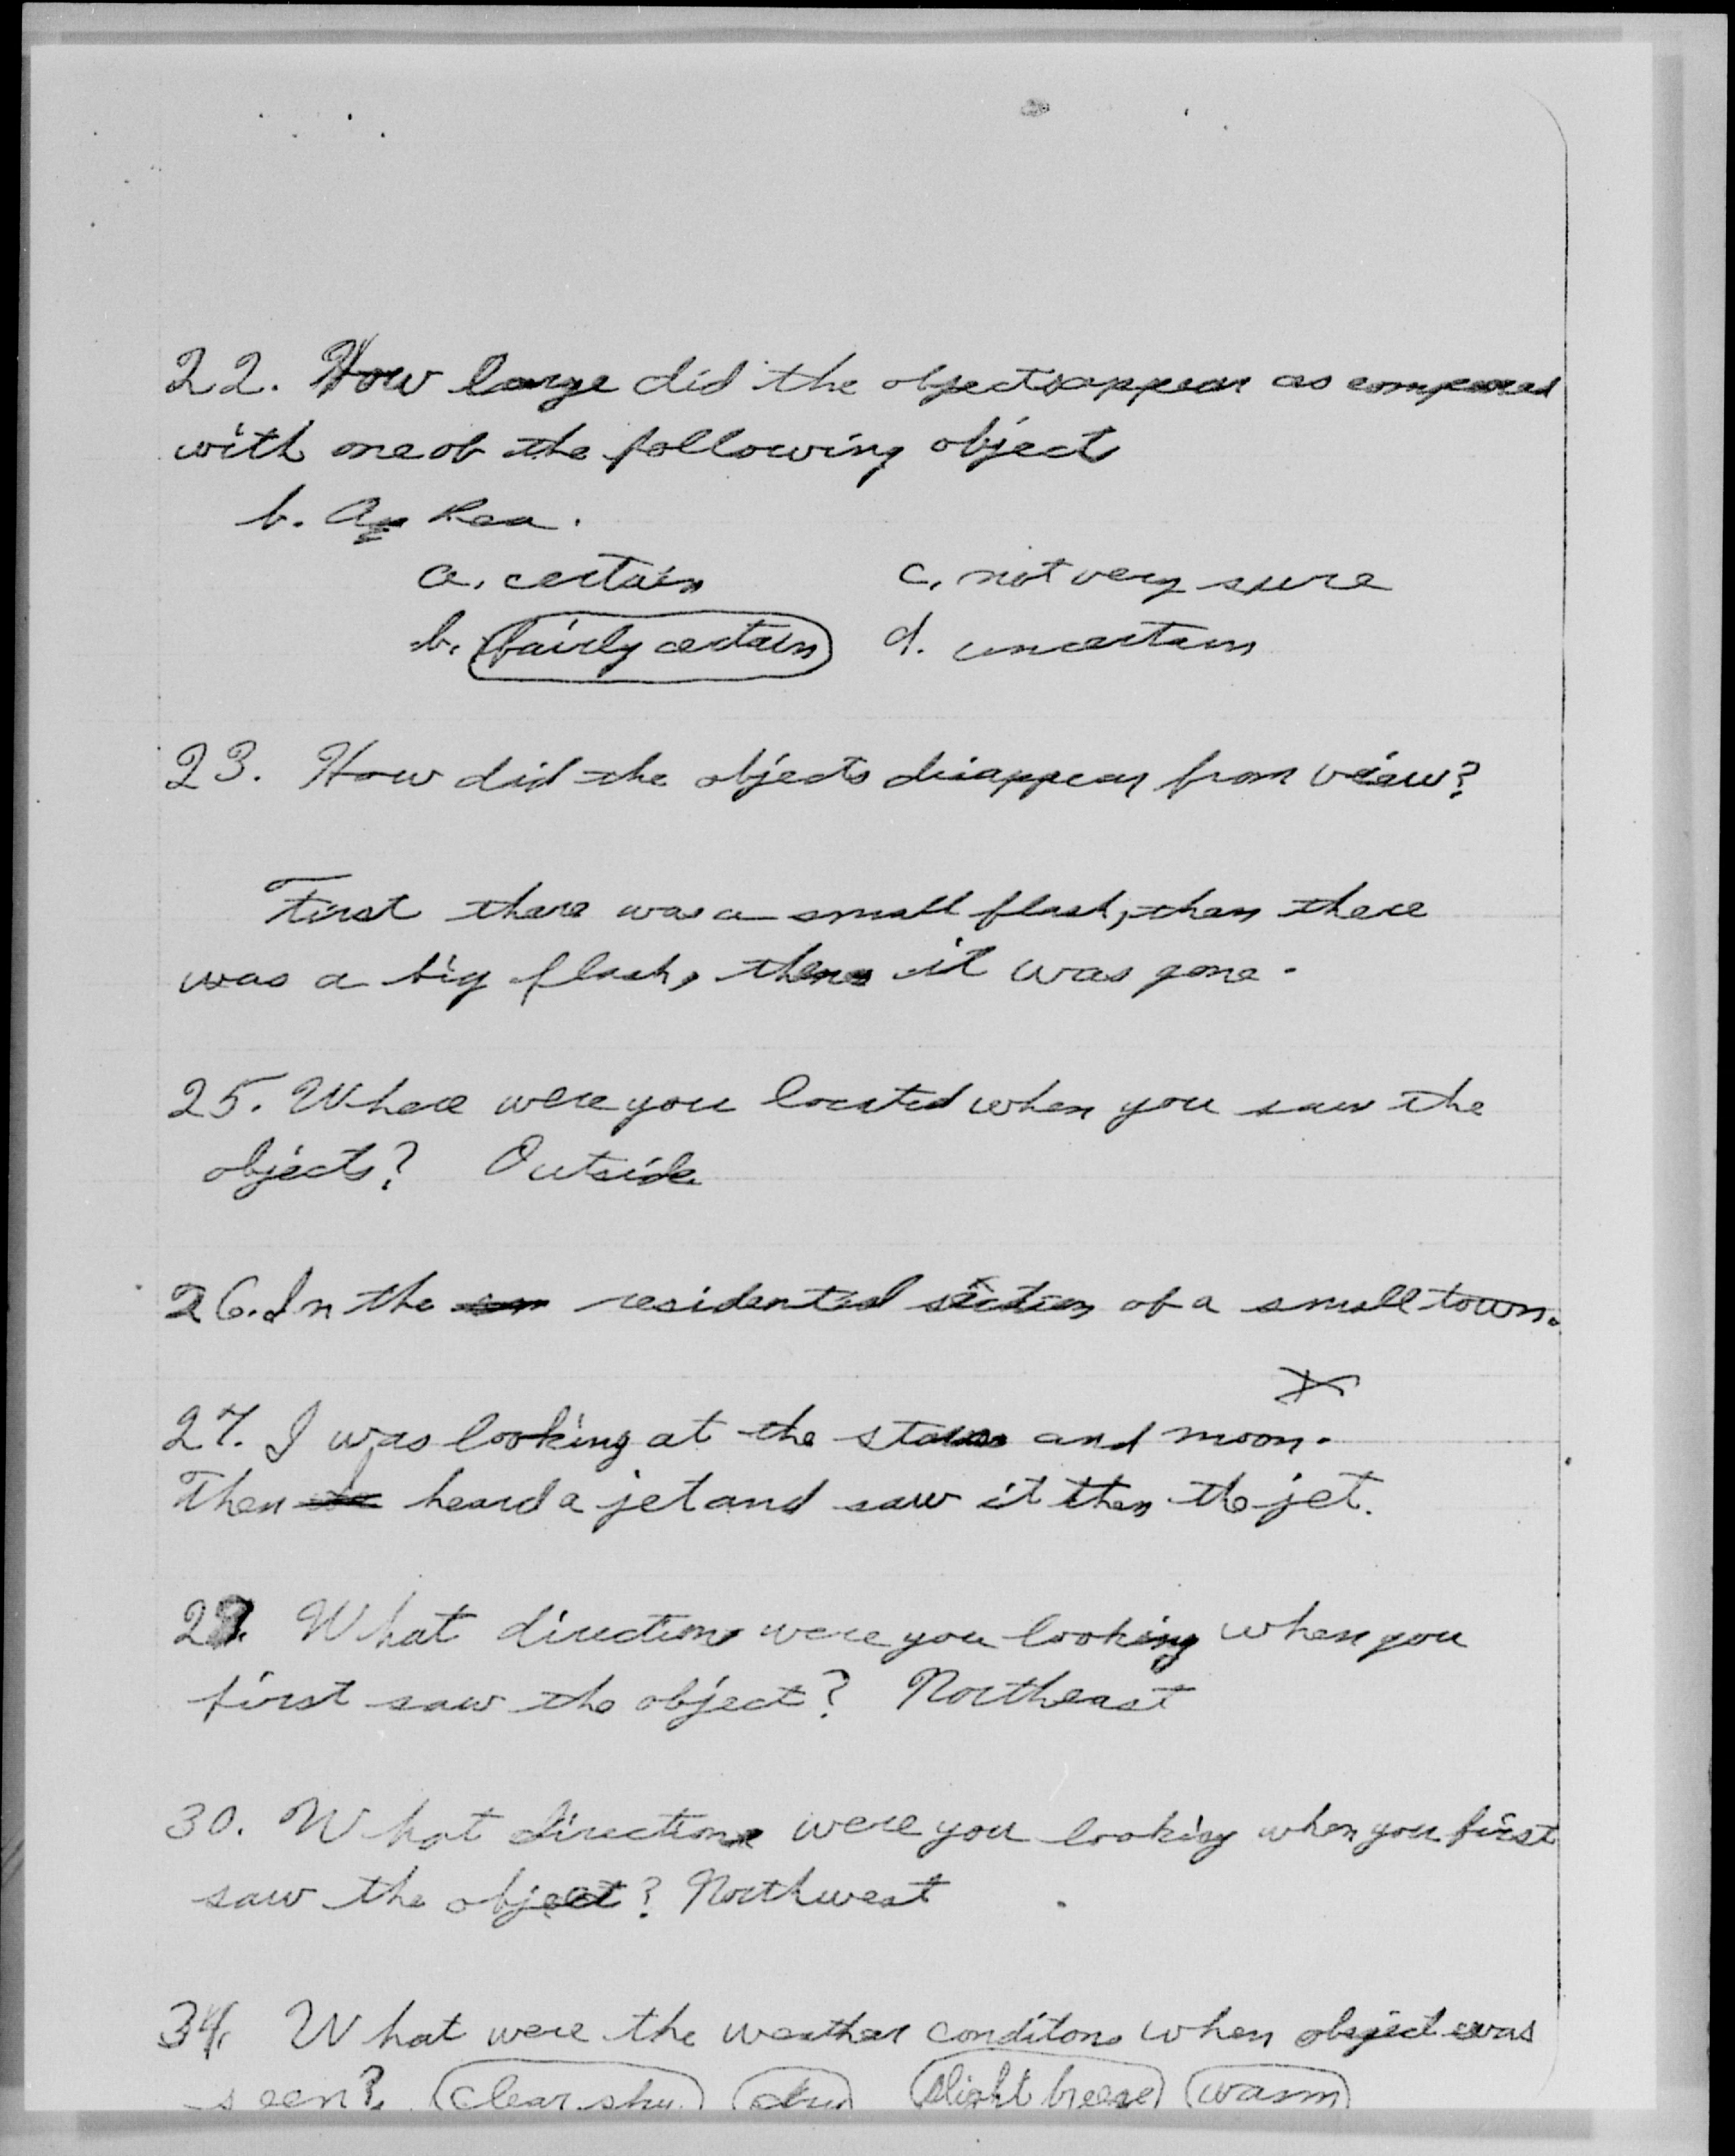 22. How large did the objects appear as compared
with one of the following object
b. A pea.
a. certain c. not very sure
b. fairly certain d. uncertain
23. How did the objects disappear from view?
First there was a small flash, then there
was a big flash, then it was gone.
25. Where were you located when you saw the
objects? Outside
26. In the residential section of a small town.
27. I was looking at the stars and moon.
Then heard a jet and saw it then the jet.
What direction were you looking when you
first saw the object? Northeast
30. What direction were you looking when you first
saw the object? Northwest
34. What were the weather conditons when object was
seen? clear sky dry slight breeze warm